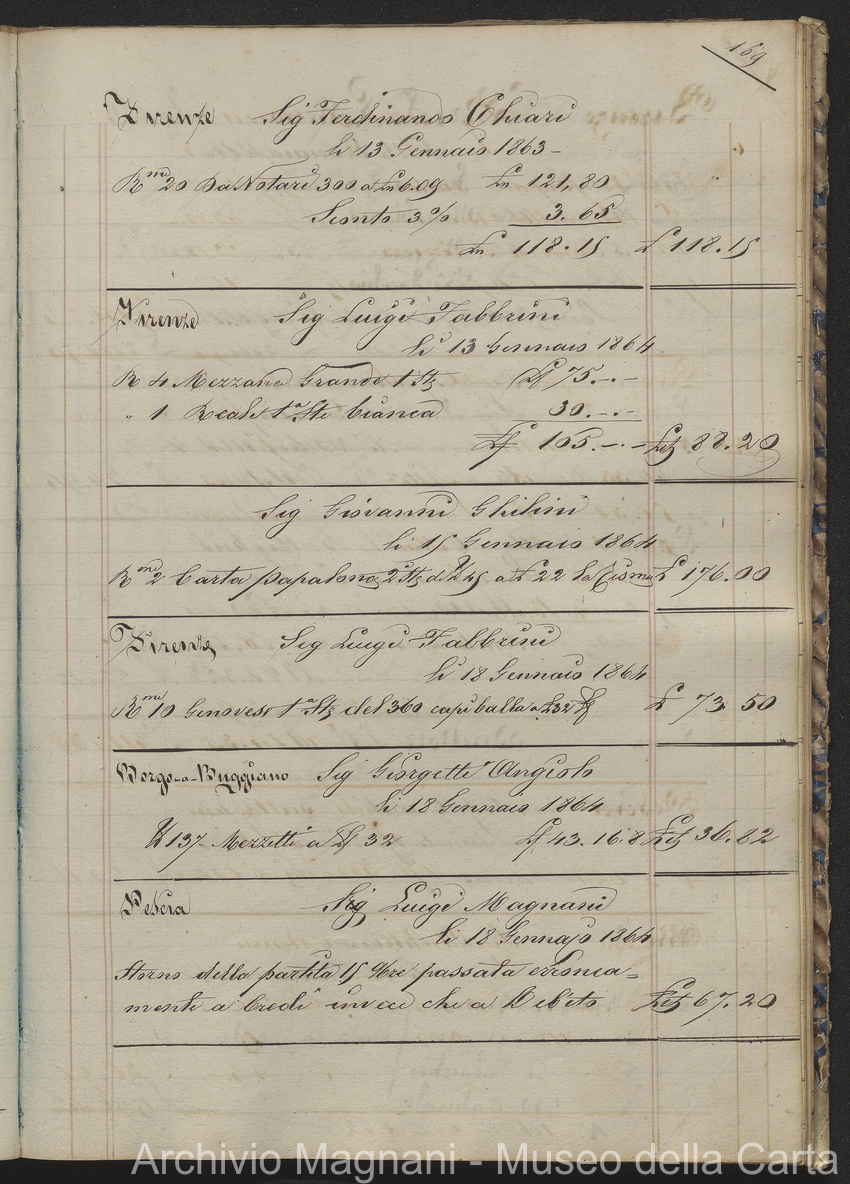 169
Firenze Sig Ferdinando Chiari
li 13 Gennaio 1863 -
Rme 20 Da Notari 300 a Ln 6.09 Ln 121,80
Sconto 3% 3.65
Ln 118.15 £ 118.15
Firenze Sig Luigi Fabbrini
li 13 Gennaio 1864
R 4 Mezzana Grande 1 Stz £ 75.-.-
„ 1 Reale 1a Ste bianca 30.-.-
£ 105.-.- 88.20
Sig Giovanni Ghilini
li 15 Gennaio 1864
Rme 2 Carta papalona 2a Stz di 45 a £ 22 la Risma £ 176.00
Firenze Sig Luigi Fabbrini
li 18 Gennaio 1864
Rme 10 Genovese 1a Stz del 360 capiballa a 32 £ 73.50
Borgo-a-Buggiano Sig Giorgetti Angiolo
li 18 Gennaio 1864
137 Mezzetti a 32 43.16.8 36.82
Pescia Sig Luigi Magnani
li 18 Gennajo 1864
Storno della partita 15 9bre passata erronea=
mente a Credi invece che a Debito 67.20
Archivio Magnani - Museo della Carta